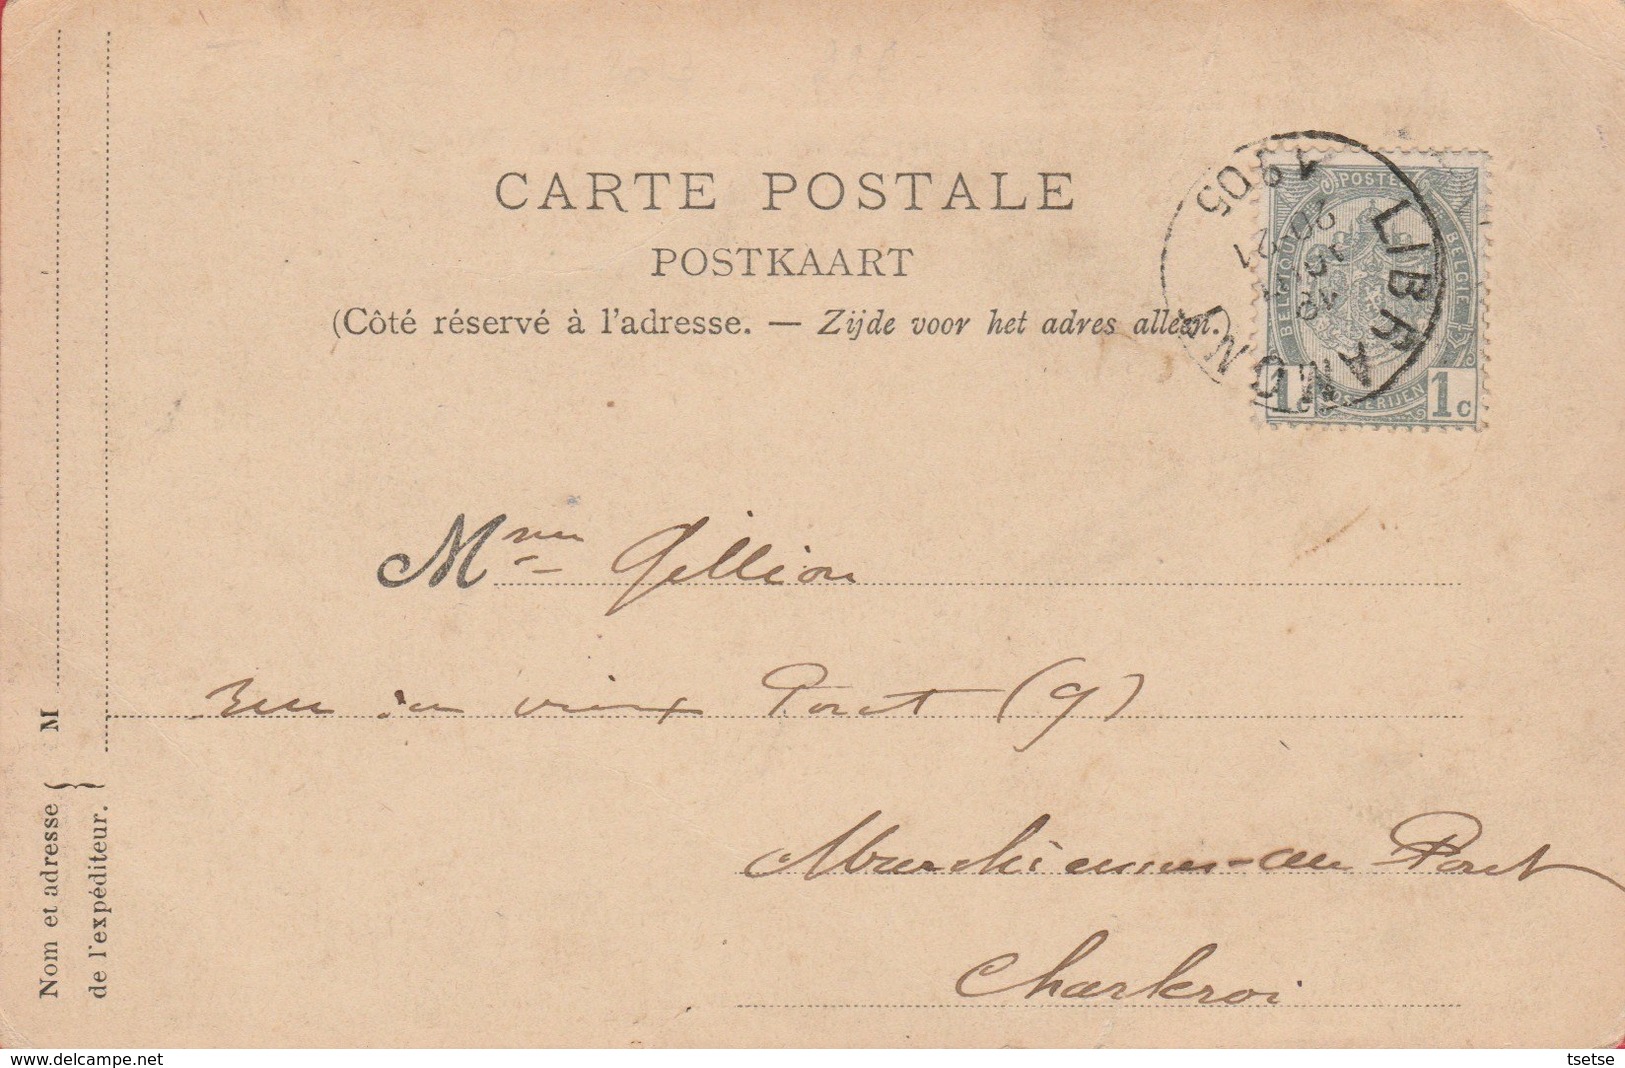 CARTE POSTALE
POSTKAART
(Côté réservé à l'adresse. — Zijde voor het adres alleen.)
1905
LIBRAMONT
POSTES
BELGIQUE
BELGIE
POSTERIJEN
1c 1c
Mme Gillion
rue du vieux Pont (9)
Marchiennes-au Pont
Charleroi
Nom et adresse
de l'expéditeur. } M
www.delcampe.net
tsetse